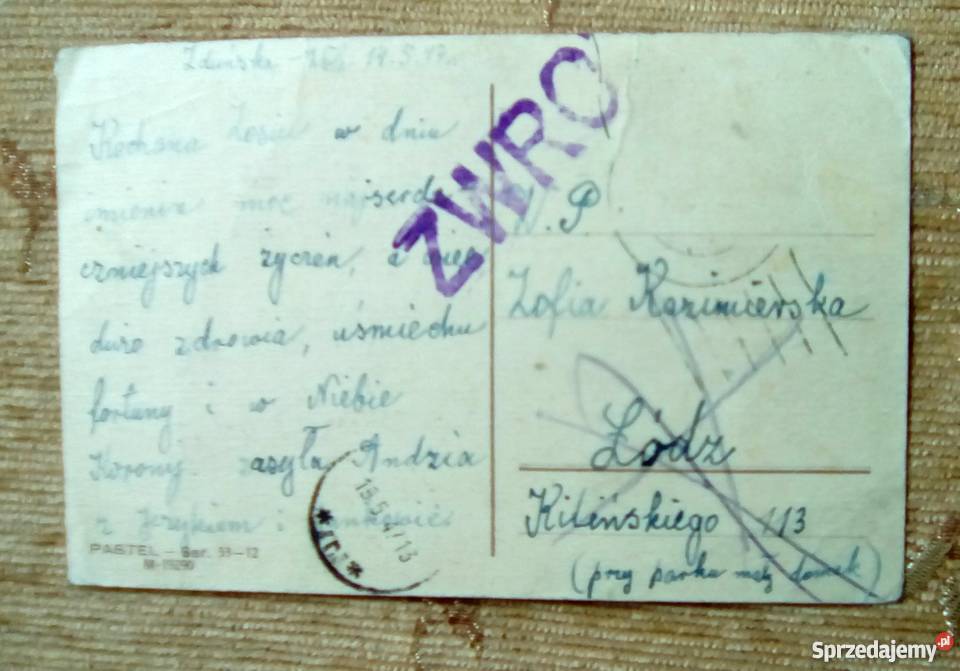 Zduńska 14.5.47r.
Kochana Zosiu w dniu
imienin moc najserde
czniejszych życzeń, a więc
dużo zdrowia, uśmiechu
fortuny i w Niebie
Korony zasyła Andzia
z Jurykiem i
PASTEL - Ser. 53-12
M-15290
ZWRO
15.5.47 13
W. P.
Zofia Kazimierska
Łódź
Kilińskiego 113
(przy parku mały domek)
Sprzedajemy.pl